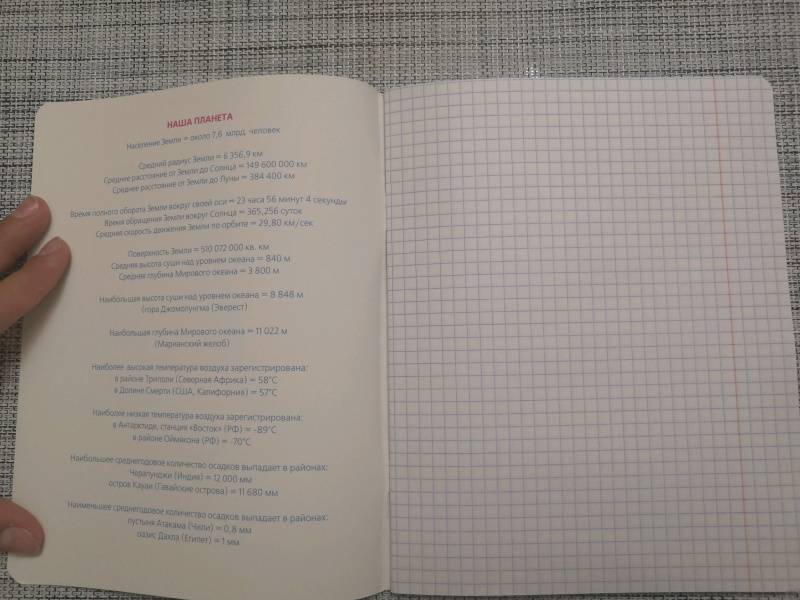 НАША ПЛАНЕТА
Население Земли = около 7,6 млрд. человек
Средний радиус Земли = 6 356,9 км
Среднее расстояние от Земли до Солнца = 149 600 000 км
Среднее расстояние от Земли до Луны = 384 400 км
Время полного оборота Земли вокруг своей оси = 23 часа 56 минут 4 секунды
Время обращения Земли вокруг Солнца = 365,256 суток
Средняя скорость движения Земли по орбите = 29,80 км/сек
Поверхность Земли = 510 072 000 кв. км
Средняя высота суши над уровнем океана = 840 м
Средняя глубина Мирового океана = 3 800 м
Наибольшая высота суши над уровнем океана = 8 848 м
(гора Джомолунгма (Эверест)
Наибольшая глубина Мирового океана = 11 022 м
(Марианский желоб)
Наиболее высокая температура воздуха зарегистрирована:
в районе Триполи (Северная Африка) = 58°C
в Долине Смерти (США, Калифорния) = 57°C
Наиболее низкая температура воздуха зарегистрирована:
в Антарктиде, станция «Восток» (РФ) = -89°C
в районе Оймякона (РФ) = -70°C
Наибольшее среднегодовое количество осадков выпадает в районах:
Черапунджи (Индия) = 12 000 мм
остров Кауаи (Гавайские острова) = 11 680 мм
Наименьшее среднегодовое количество осадков выпадает в районах:
пустыня Атакама (Чили) = 0,8 мм
оазис Дахла (Египет) = 1 мм